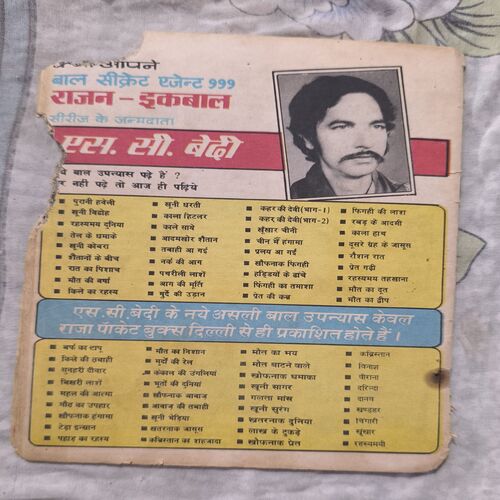 आपने
बाल सीक्रेट एजेन्ट 999
राजन - इकबाल
सीरीज के जन्मदाता
एस. सी. बेदी
ये बाल उपन्यास पढ़े है ?
र नहीं पढ़े तो आज ही पढ़िये
पुरानी हवेली
खूनी विद्रोह
रहस्यमय दुनिया
तेल के धमाके
खूनी कोबरा
शैतानों के बीच
रात का पिशाच
मौत की वर्षा
किले का रहस्य
खूनी धरती
काला हिटलर
काले साये
आदमखोर शैतान
तबाही आ गई
नर्क की आग
पथरीली लाशें
आग की मूर्ति
मुर्दे की उड़ान
कहर की देवी (भाग-1)
कहर की देवी (भाग-2)
खूँखार चीनी
चीन में हंगामा
प्रलय आ गई
खौफनाक फिगही
हड्डियों के ढांचे
फिगही का तमाशा
प्रेत की कब्र
फिगही की लाश
रबड़ के आदमी
काला हाथ
दूसरे ग्रह के जासूस
शैतान रात
प्रेत गढ़ी
रहस्यमय तहखाना
मौत का दूत
मौत का द्वीप
एस.सी.बेदी के नये असली बाल उपन्यास केवल
राजा पॉकेट बुक्स दिल्ली से ही प्रकाशित होते हैं ।
बर्फ का टापू
किले की तबाही
सुनहरी दीवार
बिखरी लाशें
महल की आत्मा
मौत का उपहार
खौफनाक हंगामा
टेड़ा इन्सान
पहाड़ का रहस्य
मौत का निशान
मुर्दों की रेल
कंकाल की उंगलियां
भूतों की दुनियां
खौफनाक आवाज
आवाज की तबाही
खूनी भेड़िया
खतरनाक जासूस
कब्रिस्तान का शहजादा
मौत का भय
मौत बांटने वाले
खौफनाक धमाका
खूनी सागर
गलता मांस
खूनी सुरंग
खतरनाक दुनिया
लाश के टुकड़े
खौफनाक प्रेत
कब्रिस्तान
विनाश
दरिन्दा
दानव
खण्डहर
चिंगारी
खूंखार
रहस्यमयी